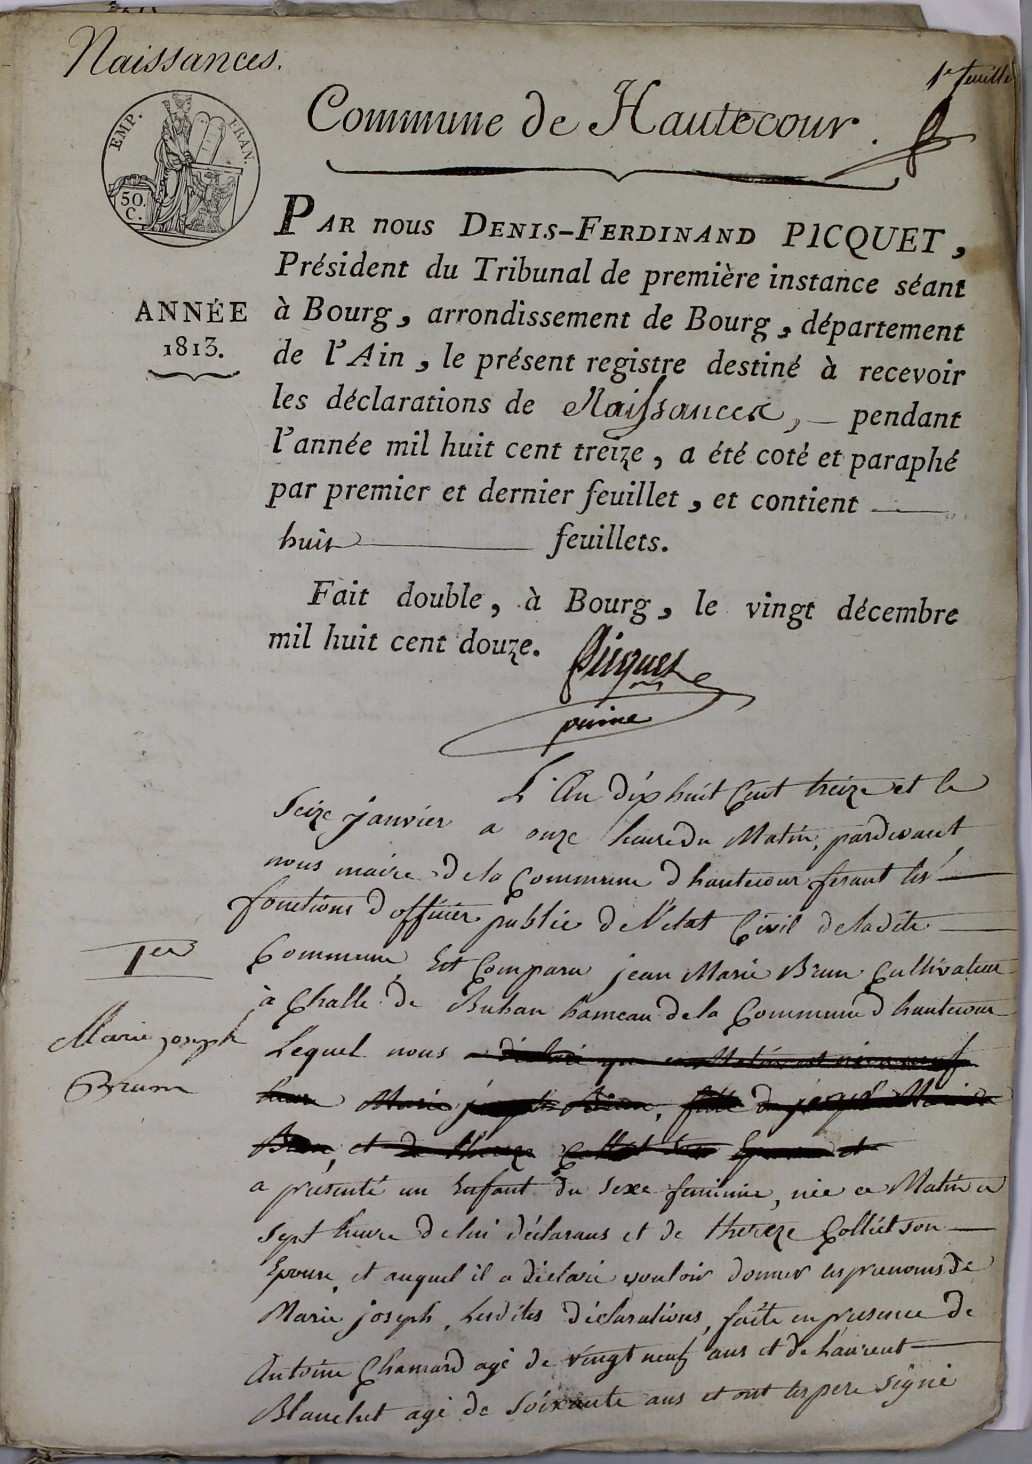 Naissances.
1e feuille
EMP. FRAN.
50.
C.
Commune de Hautecour.
ANNÉE
1813.
PAR nous DENIS-FERDINAND PICQUET,
Président du Tribunal de première instance séant
à Bourg, arrondissement de Bourg, département
de l'Ain, le présent registre destiné à recevoir
les déclarations de Naissances, — pendant
l'année mil huit cent treize, a été coté et paraphé
par premier et dernier feuillet, et contient —
huit — feuillets.
Fait double, à Bourg, le vingt décembre
mil huit cent douze.
Picquet
L'An dix huit Cent treize et le
Seize janvier a onze heure du Matin, pardevant
nous maire de la Commune d'hautecour fesant les —
fonctions d'officier public de l'état Civil de ladite —
1er
Commune, Est Comparu jean Marie Brun Cultivateur
à Challe de Buhan hameau de la Commune d'hautecour
Marie joseph
Brun
Lequel nous déclaré que ce Matin
heure Marie joseph Brun, fille de joseph Marie
Brun, et de thereze Collet son Epouse et
a presenté un Enfant du sexe feminine, née ce Matin a
sept heure de lui déclarans et de thereze Colliét son —
Epouse, et auquel il a déclaré vouloir donner les prenoms de
Marie joseph, Lesdites déclarations, faite en presence de
Antoine Chanard agé de vingt neuf ans et de Laurent —
Blanchet agé de soixante ans et ont les pere signé